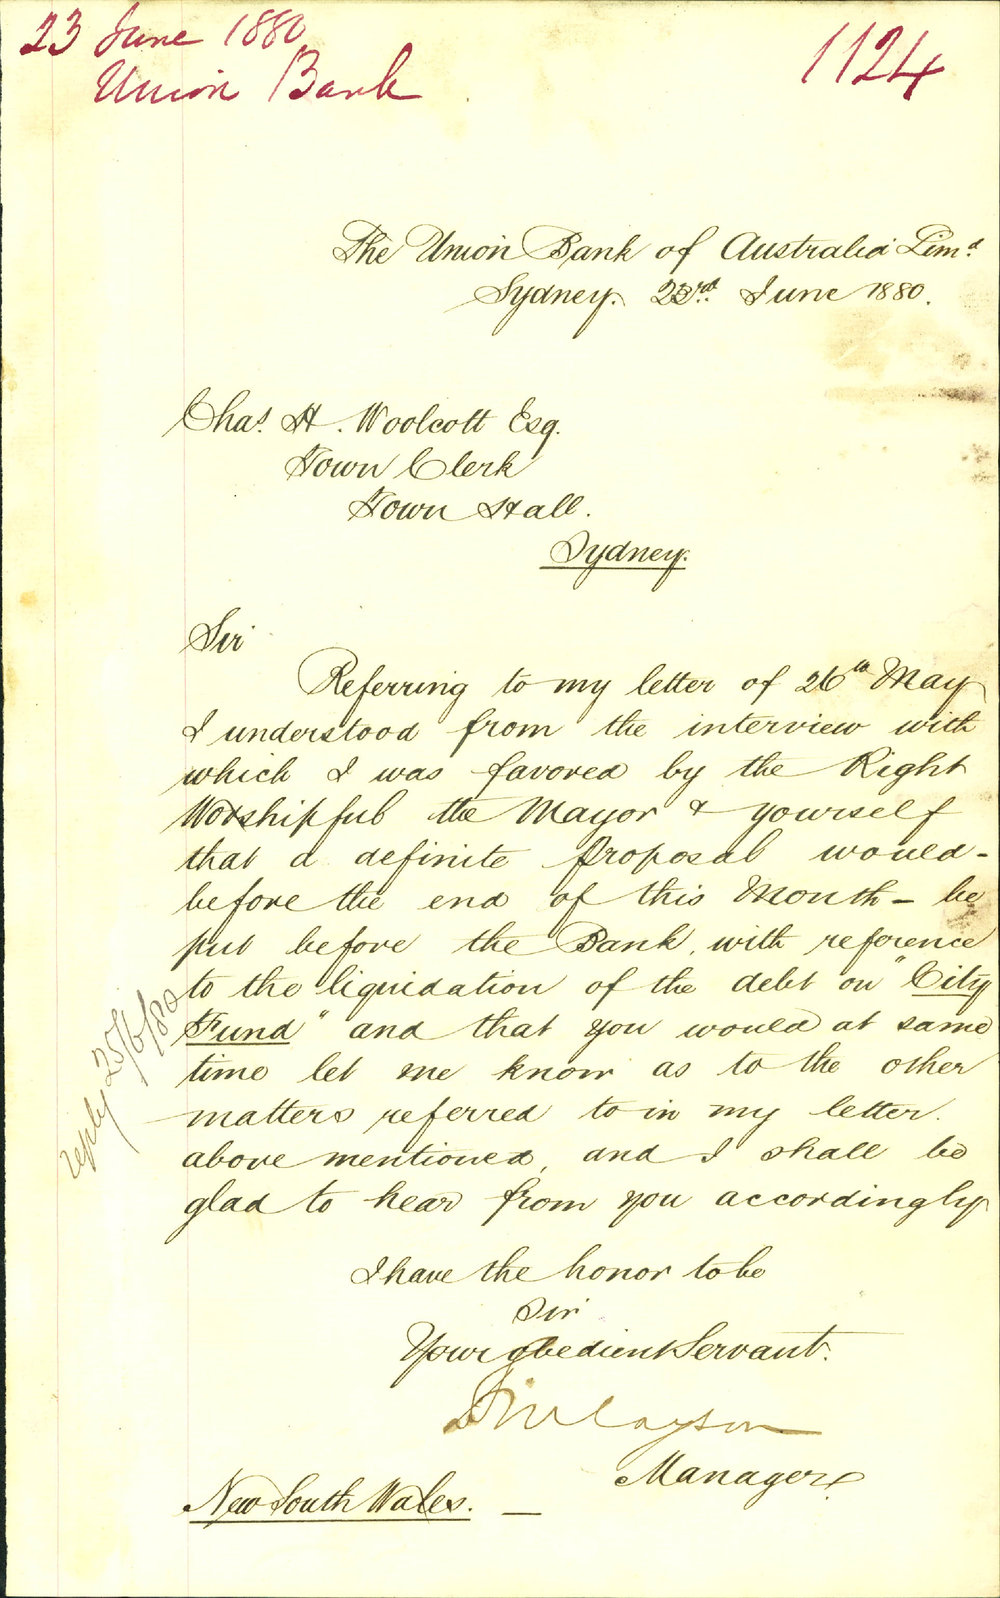 23 June 1880
Union Bank
1124
The Union Bank of Australia Lim.d
Sydney. 23rd. June 1880.
Chas. H. Woolcott Esq.
Town Clerk
Town Hall.
Sydney.
Sir
Referring to my letter of 26th May
I understood from the interview with
which I was favored by the Right
Worshipful the Mayor & yourself
that a definite proposal would -
before the end of this Month - be
put before the Bank, with reference
to the liquidation of the debt on "City
Fund" and that you would at same
time let me know as to the other
matters referred to in my letter.
above mentioned, and I shall be
glad to hear from you accordingly
reply 25/6/80
I have the honor to be
Sir
Your obedient Servant.
Manager.
New South Wales. —